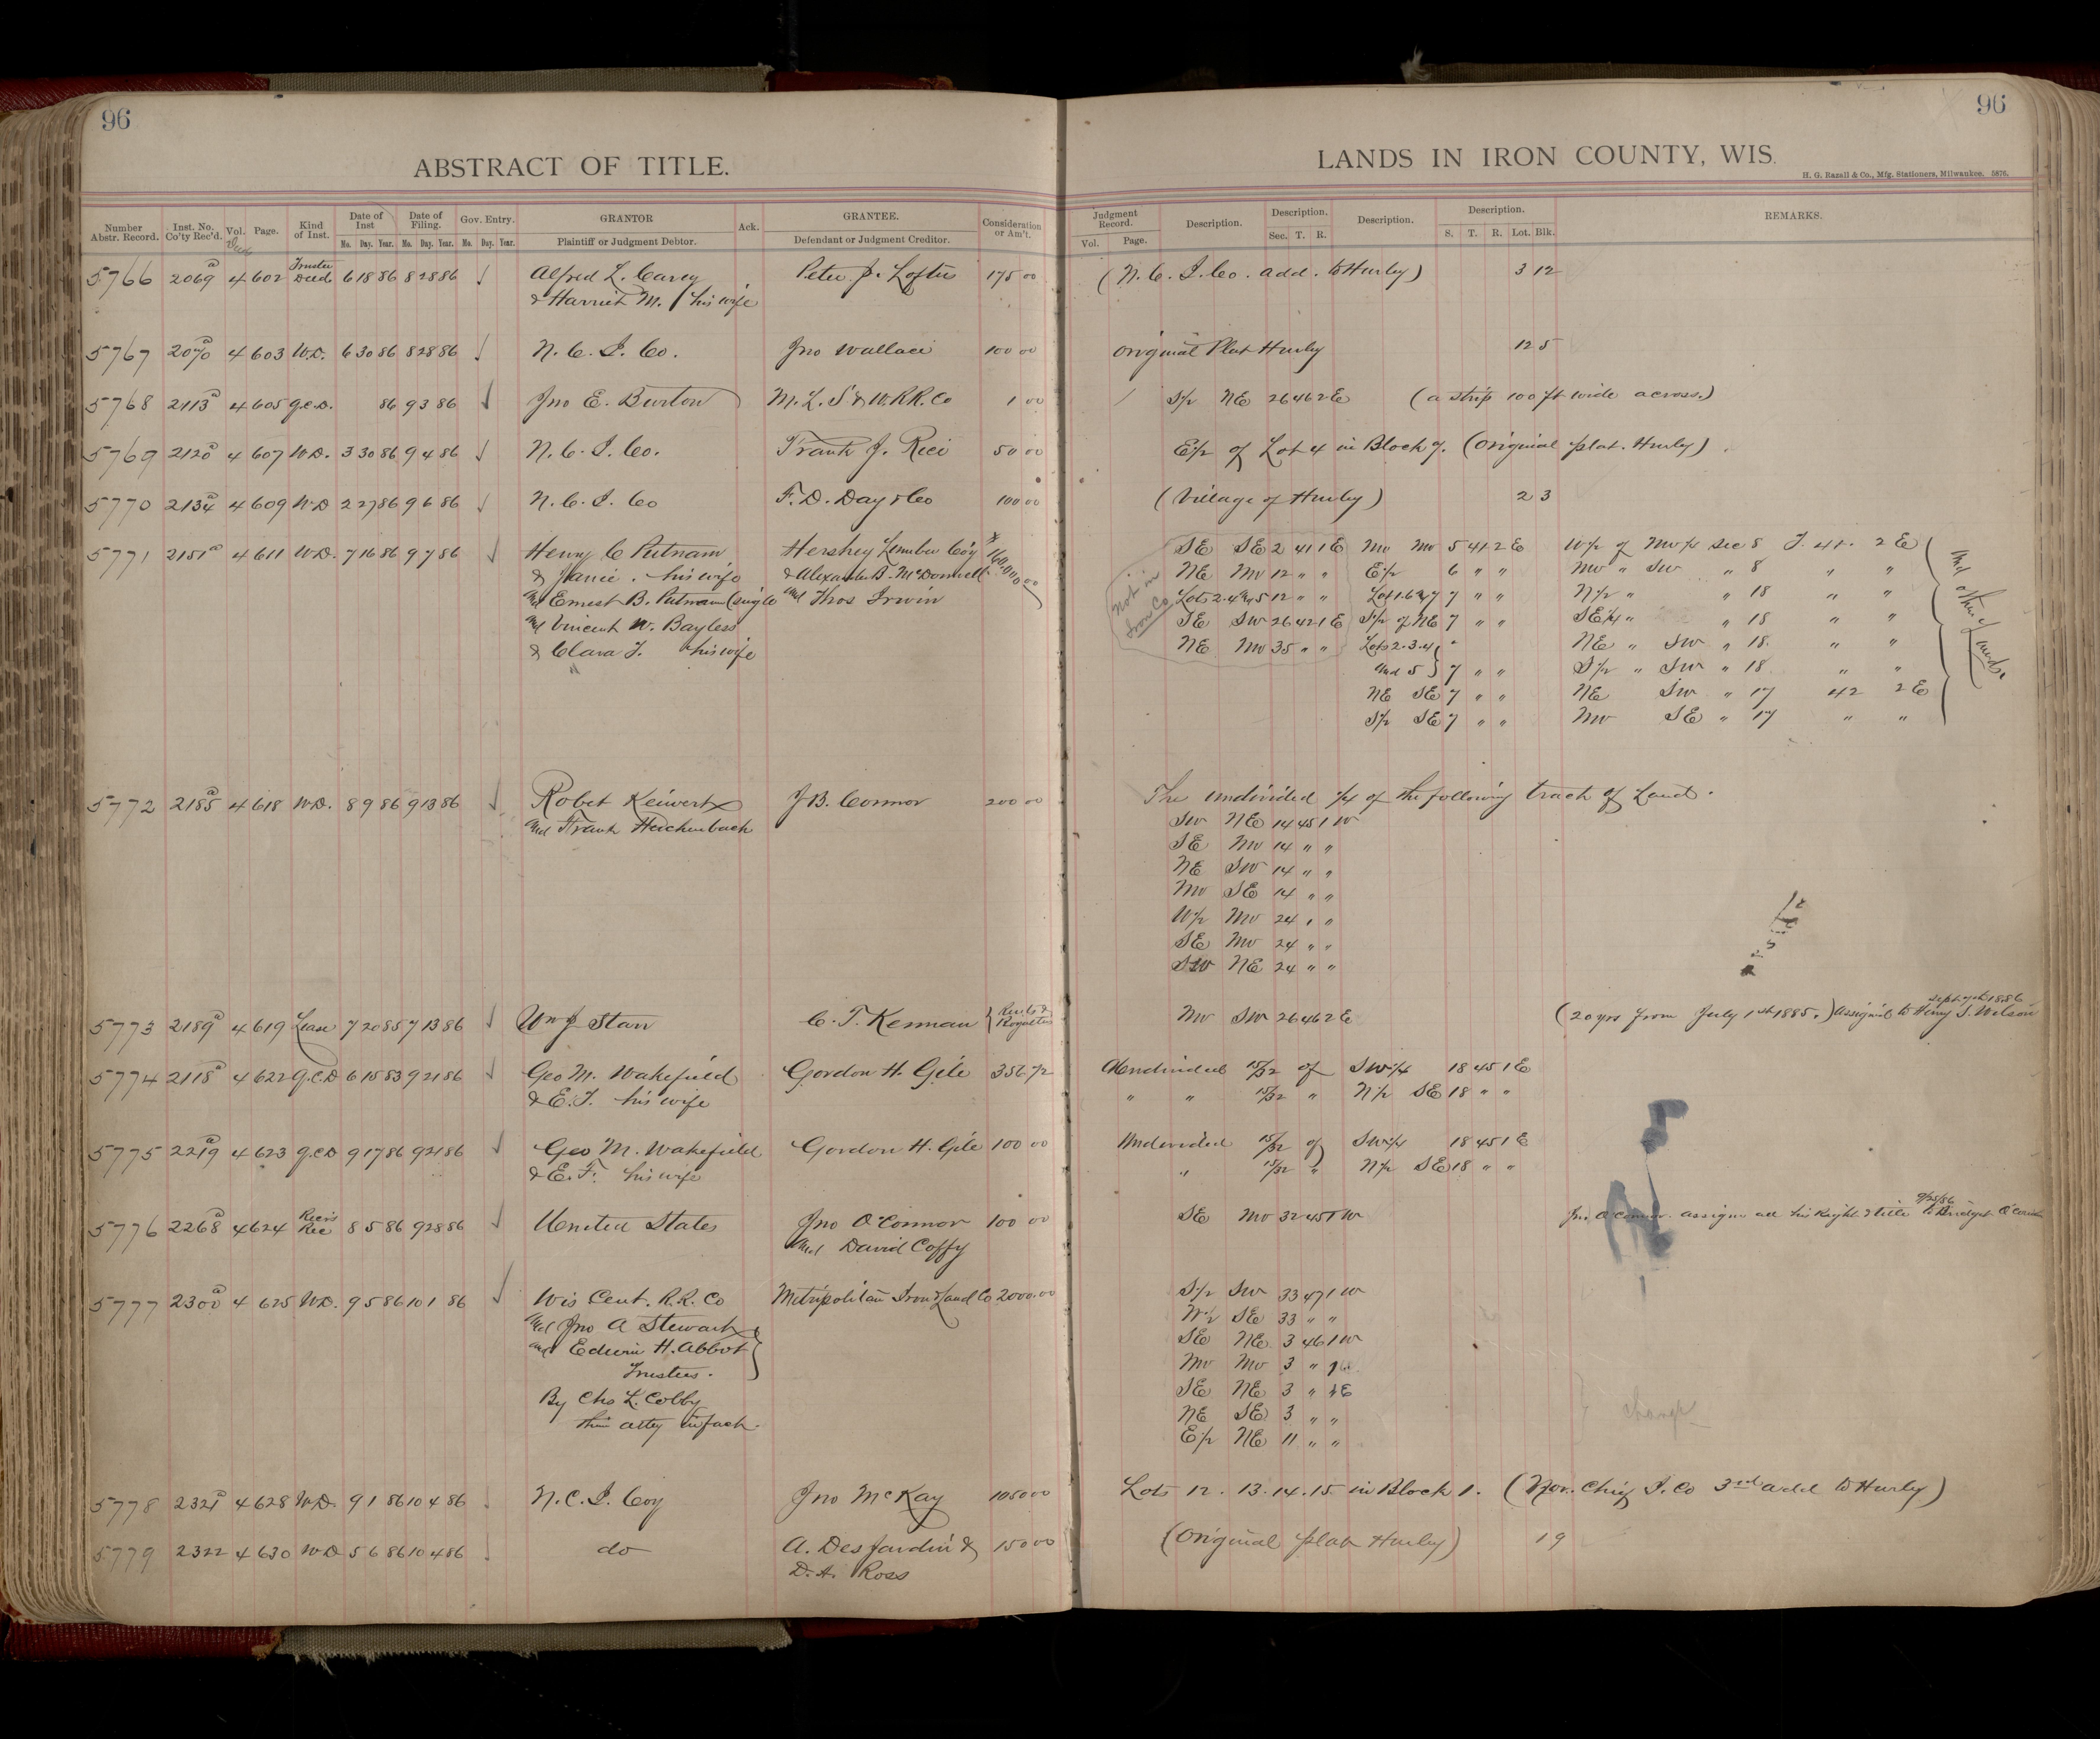 96
96
ABSTRACT OF TITLE.
LANDS IN IRON COUNTY, WIS.
H. G. Razall & Co., Mfg. Stationers, Milwaukee. 5876.
Number Abstr. Record. Inst. No. Co'ty Rec'd. Vol. Page. Kind of Inst. Date of Inst Mo. Day. Year. Date of Filing. Mo. Day. Year. Gov. Entry. Mo. Day. Year. GRANTOR Plaintiff or Judgment Debtor. Ack. GRANTEE. Defendant or Judgment Creditor. Consideration or Am't.
Judgment Record. Vol. Page. Description. Description. Sec. T. R. Description. Description. S. T. R. Lot. Blk. REMARKS.
5766 2069 a 4 602 Trustee Deed 6 18 86 8 28 86 Alfred L. Carey Peter J. Loftus 175 00 (N. C. I. Co. add. to Hurley) 3 12
& Harriet M. his wife
5767 2070 a 4 603 W.D. 6 30 86 8 28 86 N. C. I. Co. Jno Wallace 100 00 Original Plat Hurley 12 5
5768 2113 a 4 605 Q.C.D. 86 9 3 86 Jno E. Burton M. L. S & W. RR. Co 1 00 S/2 NE 26 46 2 E (a strip 100 ft wide across.)
5769 2120 a 4 607 W.D. 3 30 86 9 4 86 N. C. I. Co. Frank J. Rice 50 00 E/2 of Lot 4 in Block 7. (Original plat. Hurley)
5770 2134 a 4 609 W.D 2 27 86 9 6 86 N. C. I. Co F. D. Day & Co 100 00 (Village of Hurley) 2 3
5771 2151 a 4 611 W.D. 7 16 86 9 7 86 Henry C Putnam Hershey Lumber Co'y $160,000 00 SE SE 2 41 1 E NW NW 5 41 2 E W/2 of NW/4 Sec 8 T. 41. 2 E
& Janie . his wife & Alexander B. McDonnell NE NW 12 " " E/2 6 " " NW " SW " 8 " "
and Ernest B. Putnam (single and Thos Irwin Lots 2.4 & 5 12 " " Lot 1.6 & 7 7 " " N/2 " " 18 " "
and Vincent W. Bayless SE SW 26 42 1 E S/2 of NE 7 " " SE/4 " " 18 " "
& Clara T. his wife NE NW 35 " " Lots 2.3.4 " NE " SW " 18. " "
and 5 7 " " S/2 " SW " 18 " "
NE SE 7 " " NE SW " 17 42 2 E
S/2 SE 7 " " NW SE " 17 " "
Not in
Iron Co
and other lands.
5772 2185 a 4 618 W.D. 8 9 86 9 13 86 Robet Keiwert J B. Connor 200 00 The undivided 1/4 of the following tract of Land.
and Frank Heichenbach SW NE 14 45 1 W
SE NW 14 " "
NE SW 14 " "
NW SE 14 " "
W/2 NW 24 " "
SE NW 24 " "
SW NE 24 " "
5773 2189 a 4 619 Lease 7 20 85 7 13 86 Wm J Starr C. T. Kenman Rents & Royalties NW SW 26 46 2 E (20 yrs from July 1st 1885.) assigned to Henry S. Wilson
5774 2118 a 4 622 Q.C.D 6 15 83 9 21 86 Geo M. Wakefield Gordon H. Gile 356 72 Undivided 15/32 of SW/4 18 45 1 E
& E. T. his wife " " 15/32 " N/2 SE 18 " "
5775 2219 a 4 623 Q.C.D 9 17 86 9 21 86 Geo M. Wakefield Gordon H. Gile 100 00 Undivided 15/32 of SW/4 18 45 1 E
& E. F. his wife " 15/32 " N/2 SE 18 " "
5776 2268 a 4 624 Rec'rs Rec 8 5 86 9 28 86 United States Jno O'Connor 100 00 SE NW 32 45 1 W 9/25/86 Jno O'Connor. assigns all his Right & title to Bridget O'Connor
and David Coffy
5777 2300 a 4 625 W.D. 9 5 86 10 1 86 Wis Cent. R.R. Co Metropolitan Iron & Land Co 2000.00 S/2 SW 33 47 1 W
and Jno A Stewart W/2 SE 33 " "
and Edwin H. Abbot SE NE 3 46 1 W
Trustees. NW NW 3 "
By Chs L. Colby SE NE 3 " 1 E
their atty in fact. NE SE 3 " "
E/2 NE 11 " "
change
5778 2321 a 4 628 W.D. 9 1 86 10 4 86 N. C. I. Coy Jno McKay 1050 00 Lots 12. 13. 14. 15. in Block 1. (Nor. Chig I. Co 3rd add to Hurley)
5779 2322 4 630 W.D 5 6 86 10 4 86 do A. DesJardin & 150 00 (Original plat Hurley) 1 9
D. A. Ross